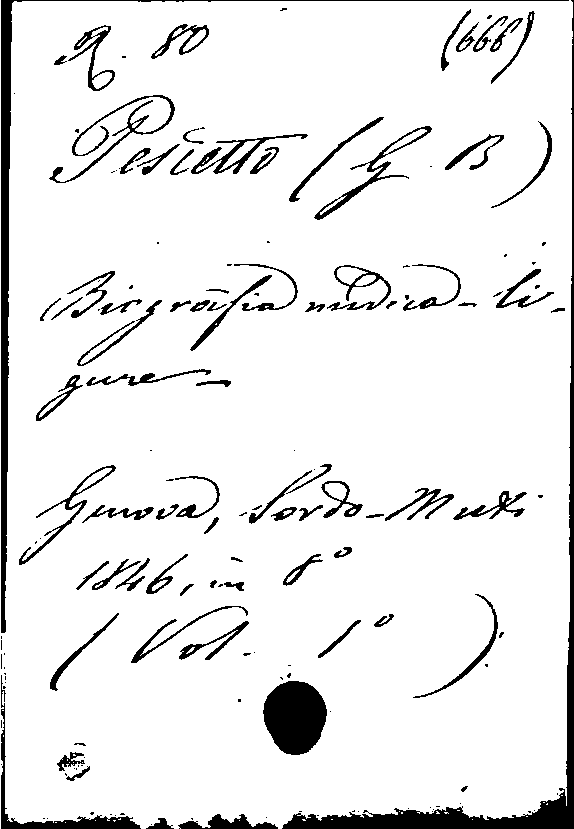 R. 80 (668)
Pescetto (G. B)
Biografia medica - li-
gure -
Genova, Sordo-Muti
1846, in 8°
(Vol. 1°)